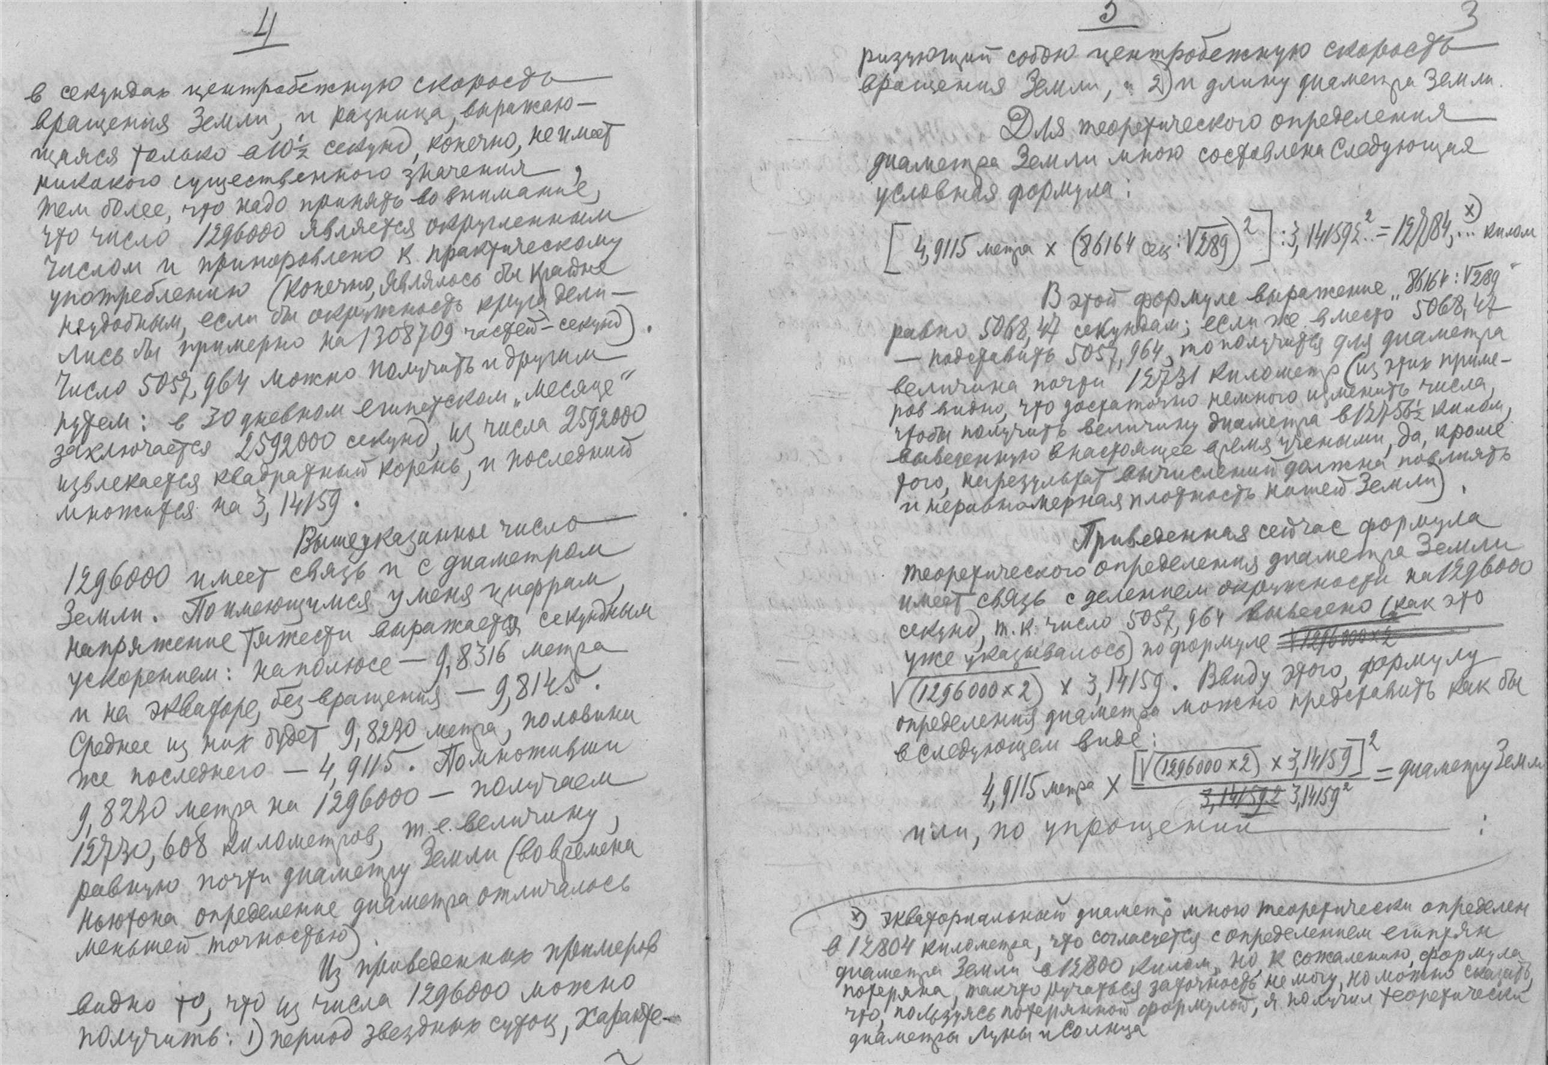 4
в секундах центробежную скорость
вращения Земли, и разница, выражаю-
щаяся только в 10½ секунд, конечно, не имеет
никакого существенного значения,
тем более, что надо принять во внимание,
что число 1296000 является округленным
числом и приноровлено к практическому
употреблению (конечно, являлось бы крайне
неудобным, если бы окружность круга дели-
лись бы примерно на 1308709 частей-секунд).
Число 5057,964 можно получить и другим
путем: в 30 дневном египетском „месяце“
заключается 2592000 секунд, из числа 2592000
извлекается квадратный корень, и последний
множится на 3,14159.
Вышеуказанное число
1296000 имеет связь и с диаметром
Земли. По имеющимся у меня цифрам,
напряжение тяжести выражается секундным
ускорением: на полюсе — 9,8316 метра
и на экваторе, без вращения — 9,8145.
Среднее из них будет 9,8230 метра, половина
же последнего — 4,9115. Помноживши
9,8230 метра на 1296000 — получаем
12730,608 километров, т.е. величину,
равную почти диаметру Земли (во времена
Ньютона определение диаметра отличалось
меньшей точностью).
Из приведенных примеров
видно то, что из числа 1296000 можно
получить: 1) период звездных суток, характе-
5
3
ризующий собою центробежную скорость
вращения Земли, и 2) и длину диаметра Земли.
Для теоретического определения
диаметра Земли мною составлена следующая
условная формула:
[4,9115 метра × (86164 сек : √289)²] : 3,14159²... = 12784,... ˣ⁾ килом
В этой формуле выражение „86164 : √289“
равно 5068,47 секундам; если же вместо 5068,47
— подставить 5057,964, то получится для диаметра
величина почти 12731 километр (из этих приме-
ров видно, что достаточно немного изменить числа,
чтобы получить величину диаметра в 12756½ килом,
выведенную в настоящее время учеными, да, кроме
того, на результат вычислений должна повлиять
и неравномерная плотность нашей Земли).
Приведенная сейчас формула
теоретического определения диаметра Земли
имеет связь с делением окружности на 1296000
секунд, т.к. число 5057,964 выведено (как это
уже указывалось) по формуле √1296000×2
√(1296000×2) × 3,14159. Ввиду этого, формулу
определения диаметра можно представить как бы
в следующем виде:
4,9115 метра × [√(1296000×2) × 3,14159]² / 3,14159² 3,14159² = диаметру Земли
или, по упрощении :
х) Экваториальный диаметр мною теоретически определен
в 12804 километра, что согласуется с определением египтян
диаметра Земли в 12800 килом, но к сожалению, формула
потеряна, так что ручаться за точность не могу, но можно сказать,
что, пользуясь потерянной формулой, я получил теоретически
диаметры Луны и Солнца